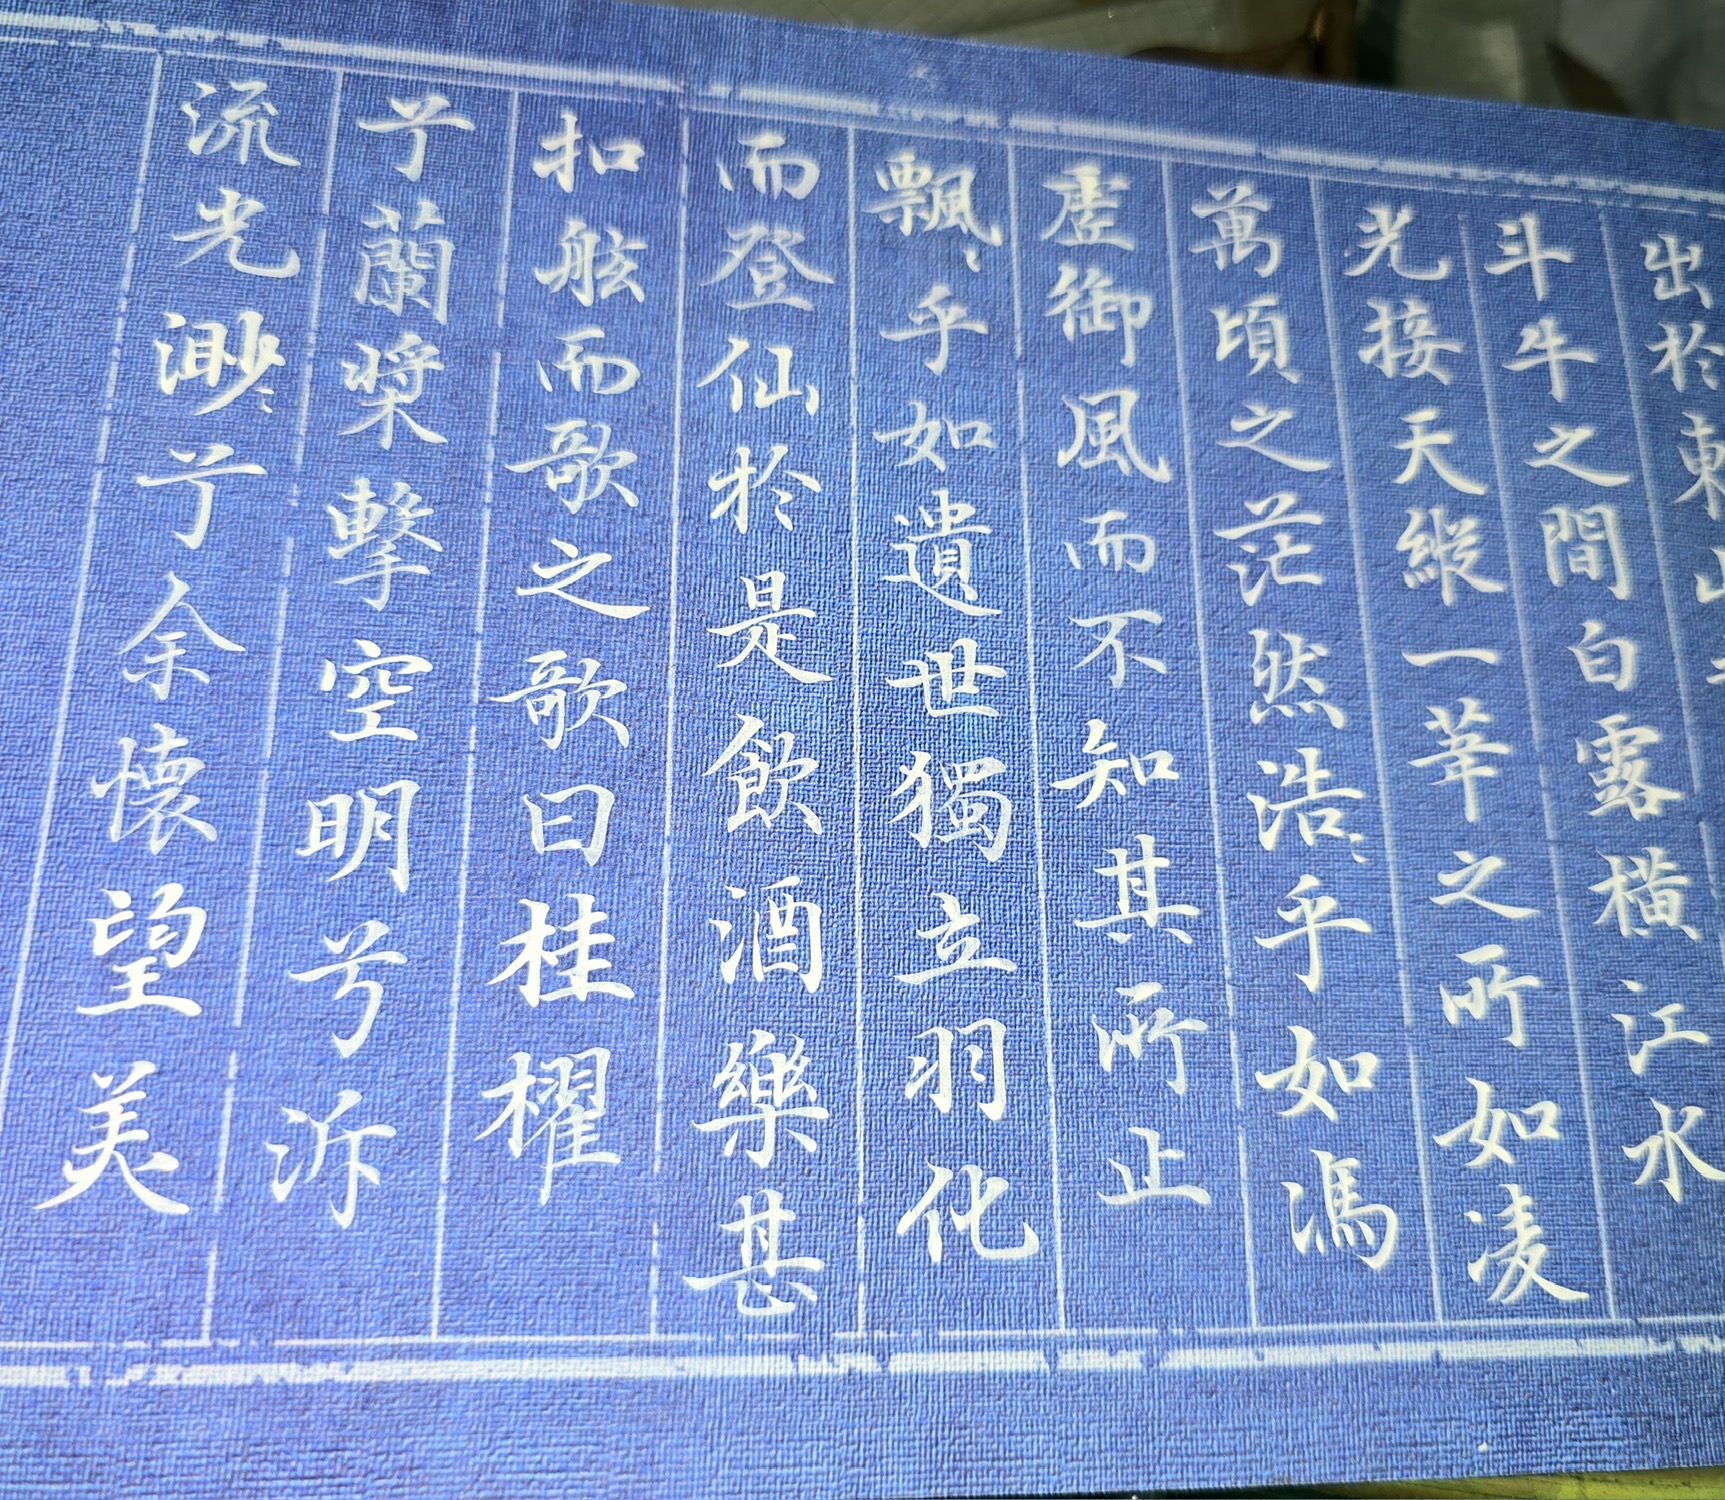 出於東山
斗牛之間白露橫江水
光接天縱一葦之所如凌
萬頃之茫然浩〻乎如馮
虛御風而不知其所止
飄〻乎如遺世獨立羽化
而登仙於是飲酒樂甚
扣舷而歌之歌曰桂櫂
兮蘭槳擊空明兮泝
流光渺〻兮余懷望美